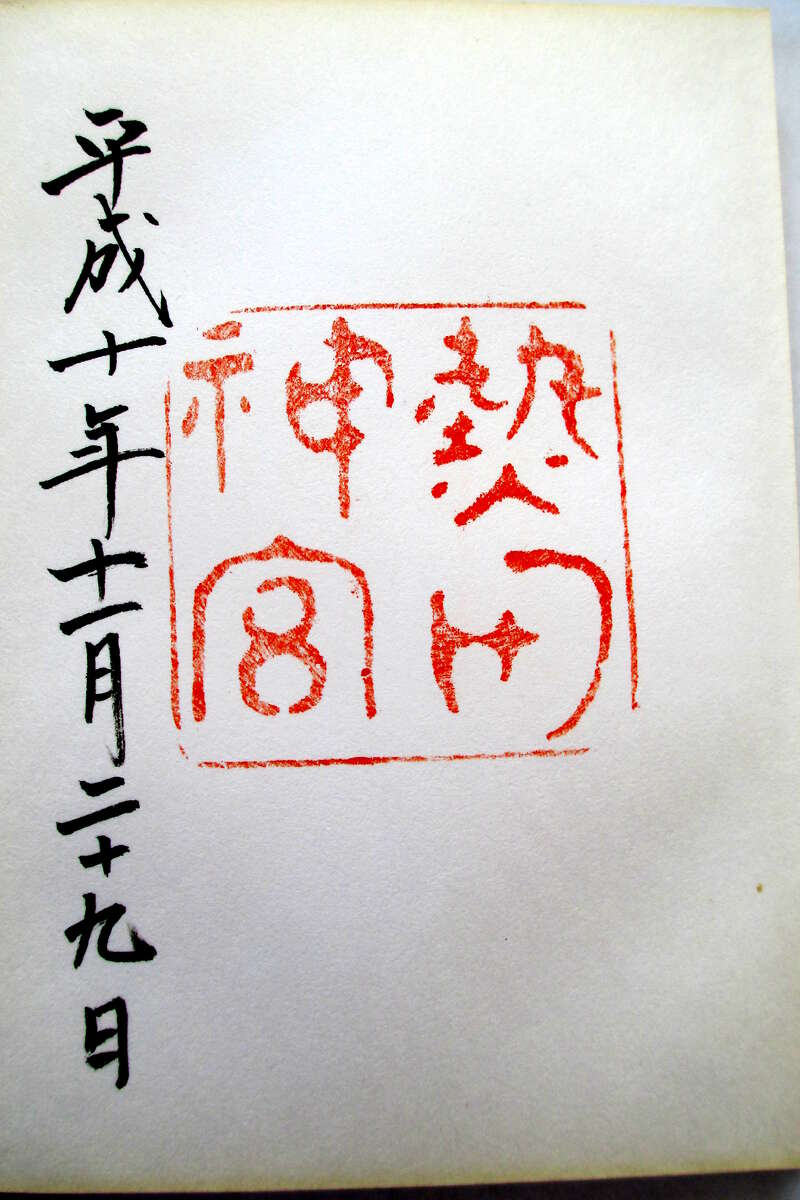 熱田
神宮
平成十年十一月二十九日